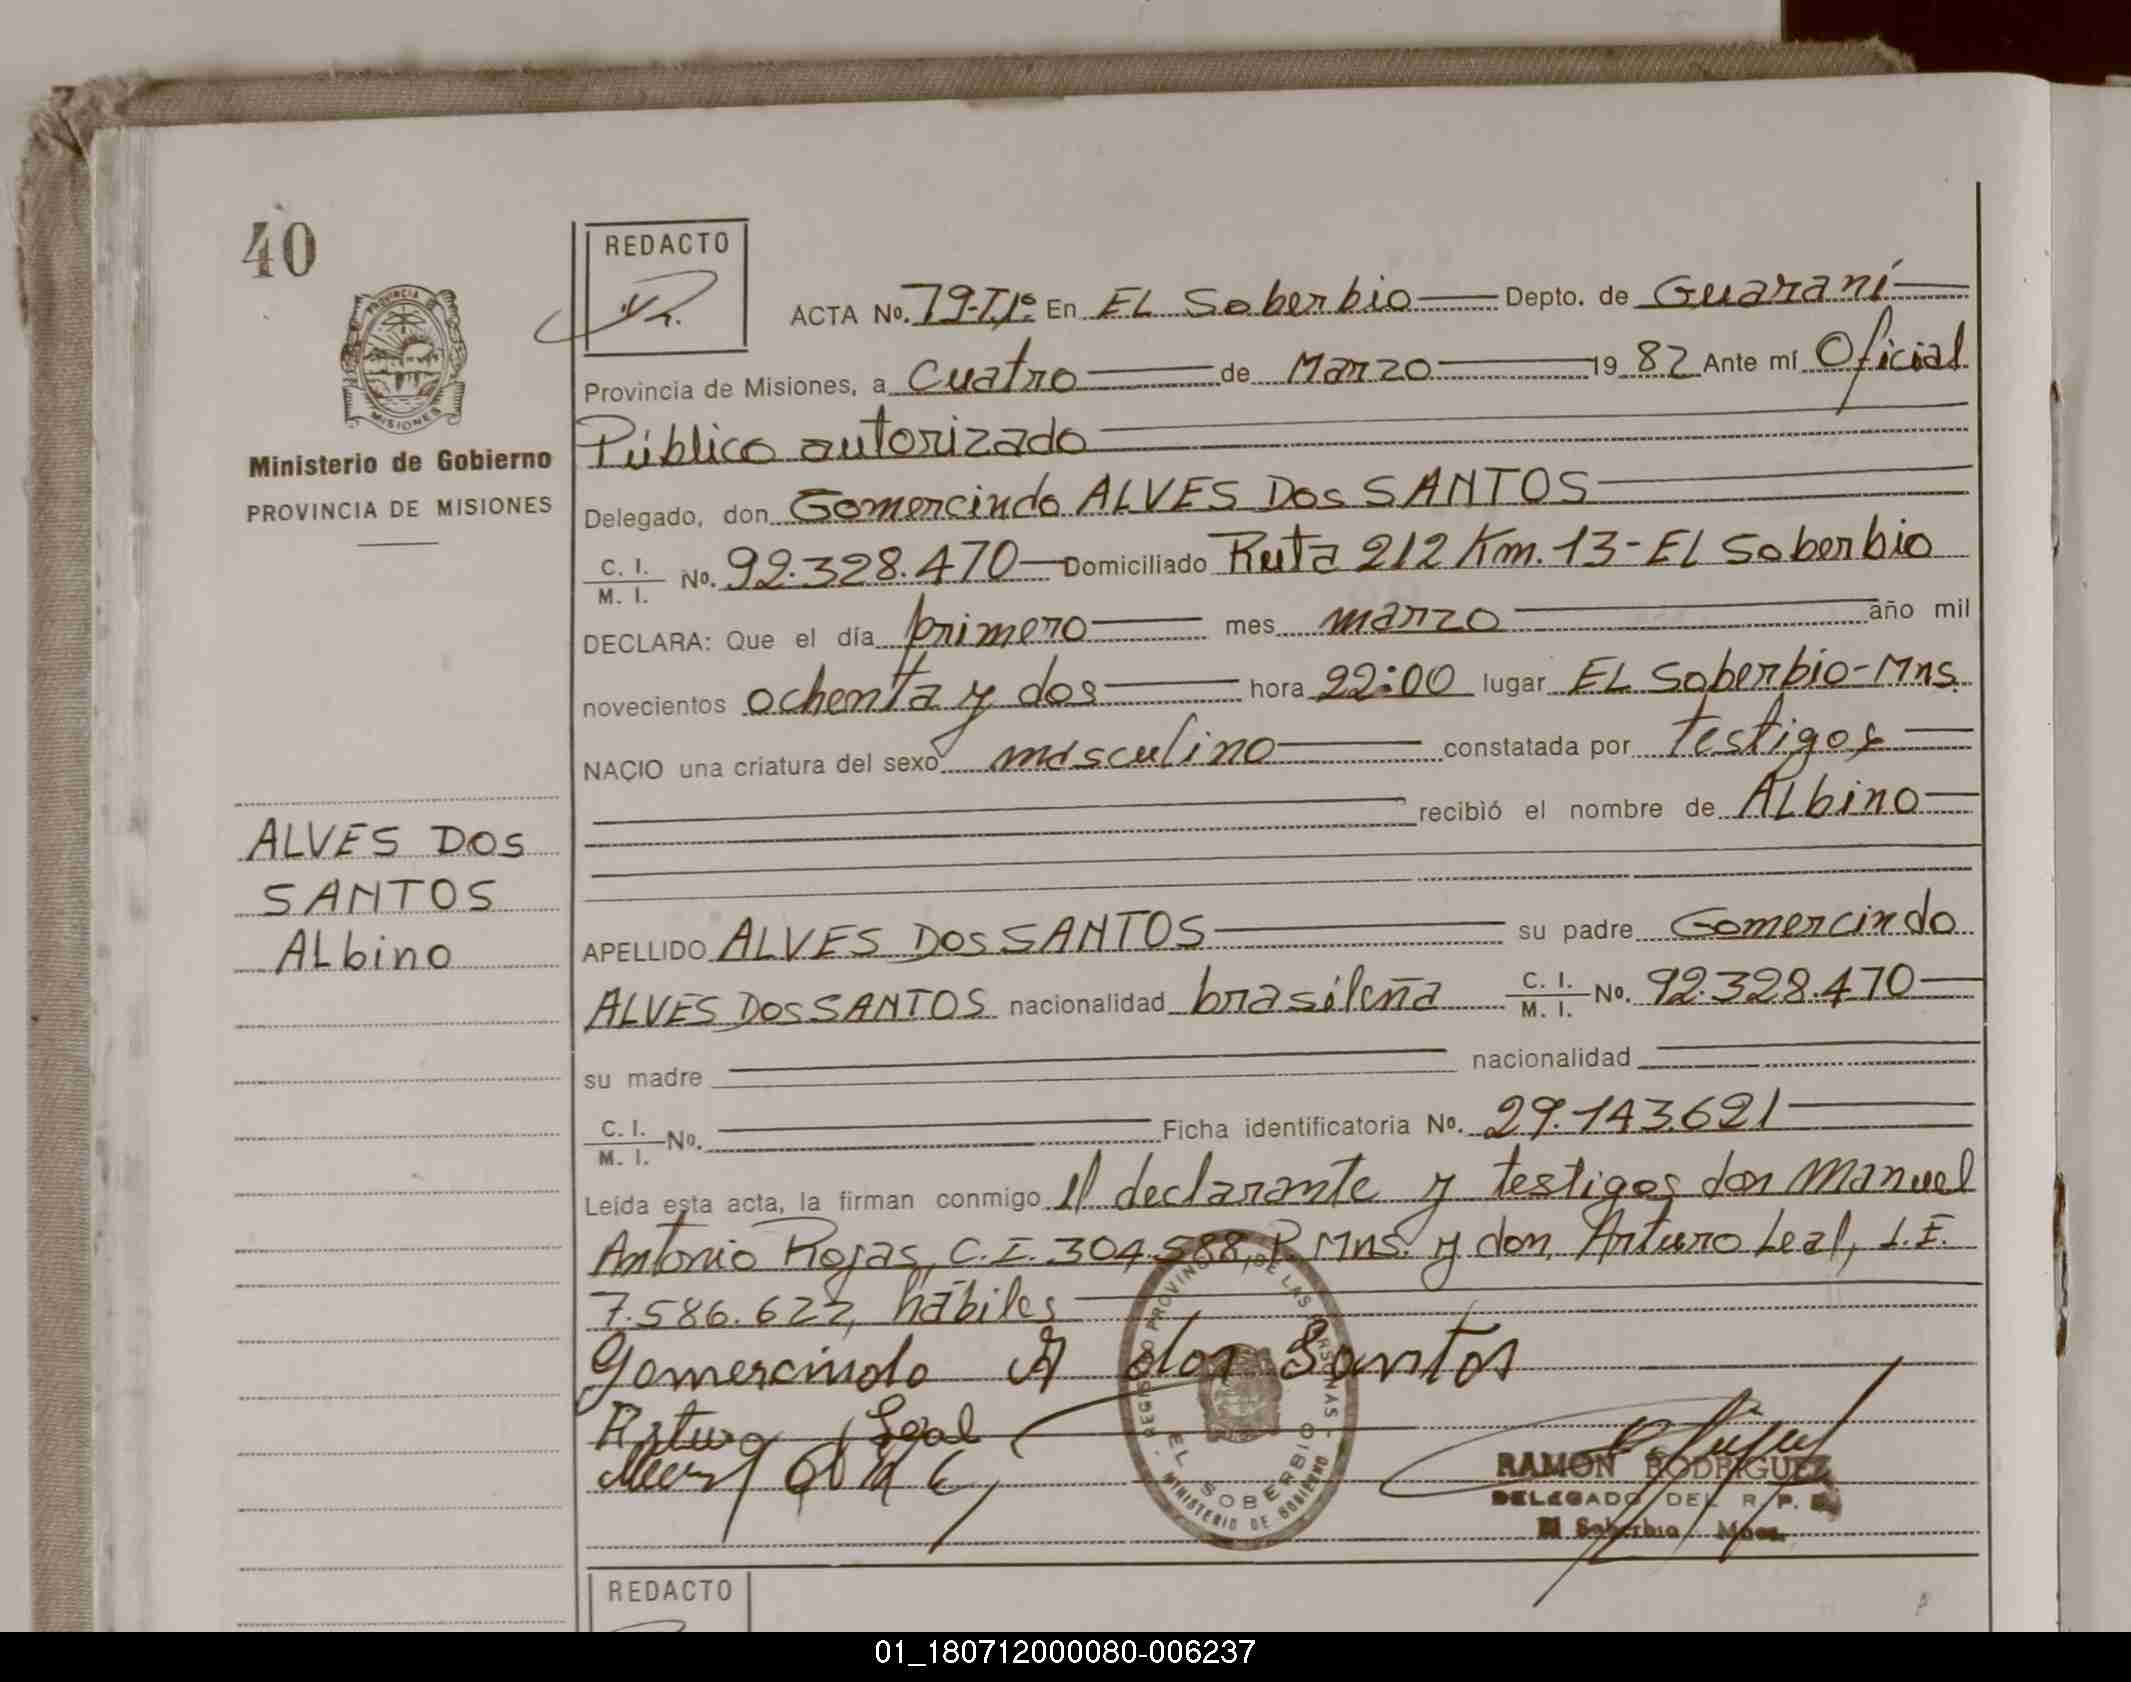 40
REDACTO
ACTA No. 79-T.1º En EL Soberbio Depto. de Guaraní
Provincia de Misiones, a Cuatro de Marzo 19 82 Ante mí Oficial
Público autorizado
PROVINCIA DE
MISIONES
Ministerio de Gobierno
PROVINCIA DE MISIONES
Delegado, don Gomercindo ALVES DOS SANTOS
C. I.
M. I. No. 92.328.470 Domiciliado Ruta 212 Km. 13-EL Soberbio
DECLARA: Que el día primero mes marzo año mil
novecientos ochenta y dos hora 22:00 lugar EL Soberbio-Mns.
NACIO una criatura del sexo masculino constatada por testigos
recibió el nombre de ALbino
ALVES DOS
SANTOS
ALbino
APELLIDO ALVES DOS SANTOS su padre Gomercindo
ALVES DOS SANTOS nacionalidad brasileña C. I. M. I. No. 92.328.470
su madre nacionalidad
C. I. M. I. No. Ficha identificatoria No. 29.143.621
Leída esta acta, la firman conmigo el declarante y testigos don Manuel
Antonio Rojas, C.I. 304.588, P. Mns. y don Arturo Leal, L.E.
7.586.622, hábiles
Gomercindo A dos Santos
Arturo Leal
REGISTRO PROVINCIAL DE LAS PERSONAS
EL SOBERBIO
MINISTERIO DE GOBIERNO
RAMON RODRIGUEZ
DELEGADO DEL R. P.
El Soberbio Mnes.
REDACTO
01_180712000080-006237